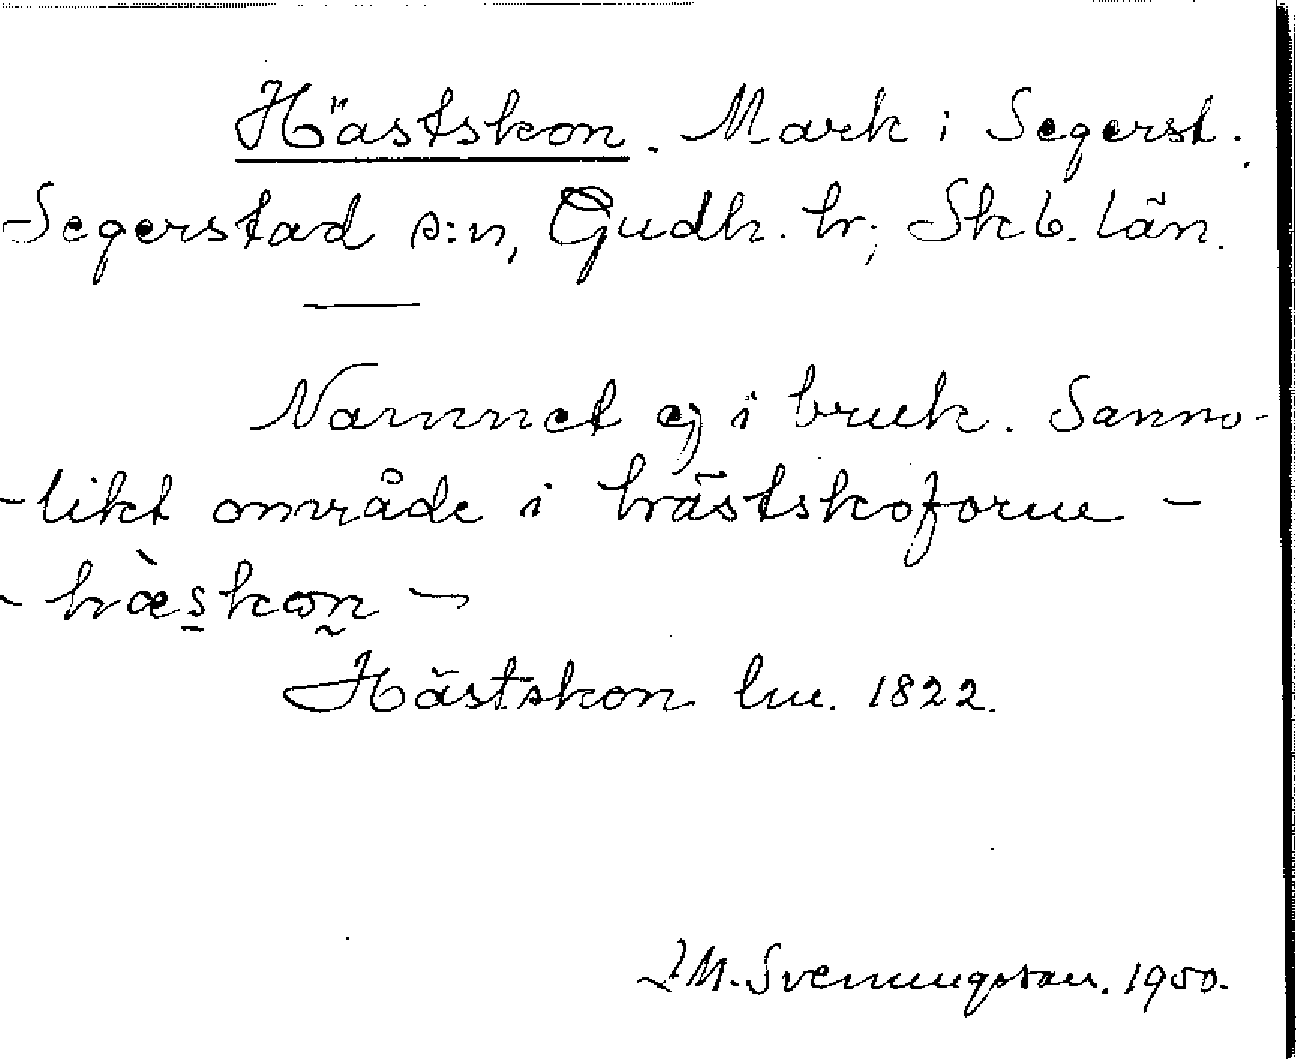 Hästskon. Mark i Segerst.
Segerstad s:n, Gudh. hr; Skb. län.
Namnet ej i bruk. Sanno-
likt område i hästskoform -
hæskon
Hästskon lm. 1822.
Svenungsson. 1950.